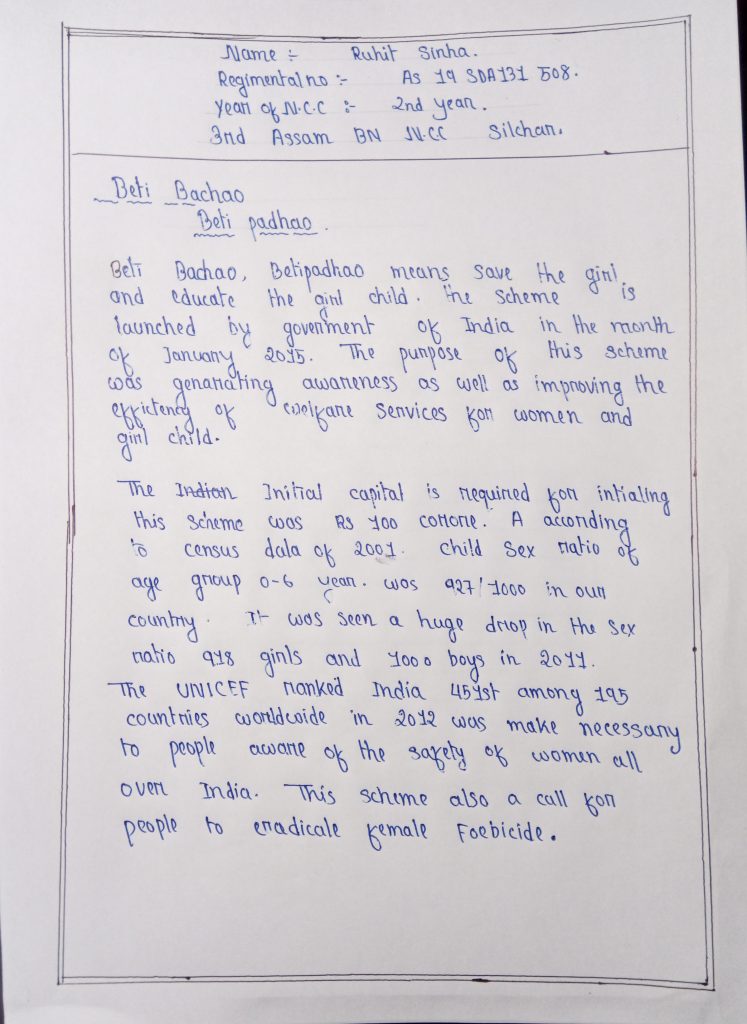 Name :- Ruhit Sinha.
Regimental no :- As 19 SDA131 508.
Year of N.C.C :- 2nd year.
3rd Assam BN N.CC Silchar.
Beti Bachao
Beti padhao.
Beti Bachao, Betipadhao means save the girl
and educate the girl child. The scheme is
launched by goverment of India in the month
of January 2015. The purpose of this scheme
was genarating awareness as well as improving the
efficiency of welfare services for women and
girl child.
The Indian Initial capital is required for intialing
this scheme was Rs 100 corore. A according
to census data of 2001. child sex ratio of
age group 0-6 year. was 927/1000 in our
country. It was seen a huge drop in the sex
ratio 918 girls and 1000 boys in 2011.
The UNICEF ranked India 451st among 195
countries worldwide in 2012 was make necessary
to people aware of the safety of woman all
over India. This scheme also a call for
people to eradicale female Foebicide.